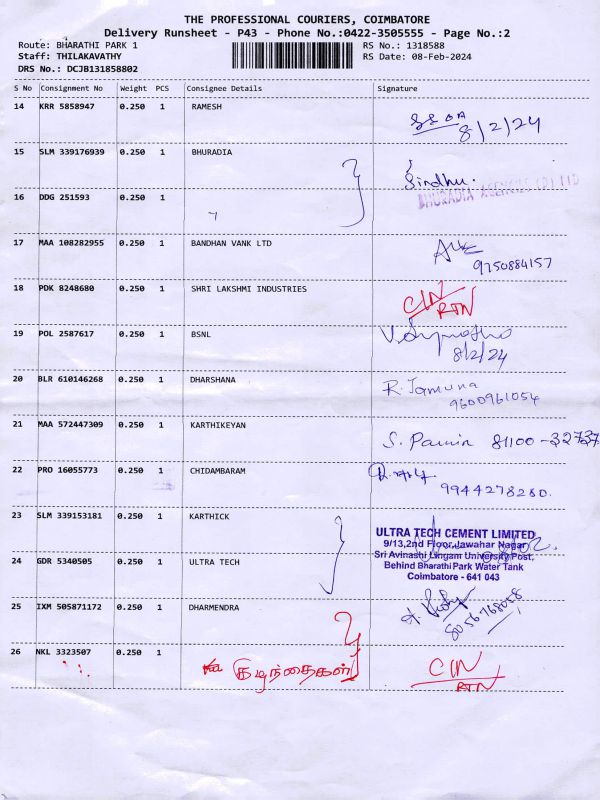 THE PROFESSIONAL COURIERS, COIMBATORE
Delivery Runsheet - P43 - Phone No.:0422-3505555 - Page No.:2
Route: BHARATHI PARK 1 RS No.: 1318588
Staff: THILAKAVATHY RS Date: 08-Feb-2024
DRS No.: DCJB131858802
S No Consignment No Weight PCS Consignee Details Signature
14 KRR 5858947 0.250 1 RAMESH
8/2/24
15 SLM 339176939 0.250 1 BHURADIA Sindhu.
BHURADIA AGENCIES (P) LTD
16 DDG 251593 0.250 1
17 MAA 108282955 0.250 1 BANDHAN VANK LTD
9750884157
18 PDK 8248680 0.250 1 SHRI LAKSHMI INDUSTRIES CIN
RTN
19 POL 2587617 0.250 1 BSNL
8/2/24
20 BLR 610146268 0.250 1 DHARSHANA R. Jamuna
9600961054
21 MAA 572447309 0.250 1 KARTHIKEYAN S. 81100-32737
22 PRO 16055773 0.250 1 CHIDAMBARAM
9944278280.
23 SLM 339153181 0.250 1 KARTHICK
ULTRA TECH CEMENT LIMITED
9/13,2nd Floor,Jawahar Nagar
Sri Avinashi Lingam University Post,
24 GDR 5340505 0.250 1 ULTRA TECH Behind Bharathi Park Water Tank
Coimbatore - 641 043
25 IXM 505871172 0.250 1 DHARMENDRA
8056768058
26 NKL 3323507 0.250 1 குழந்தைகள் CIN
RTN